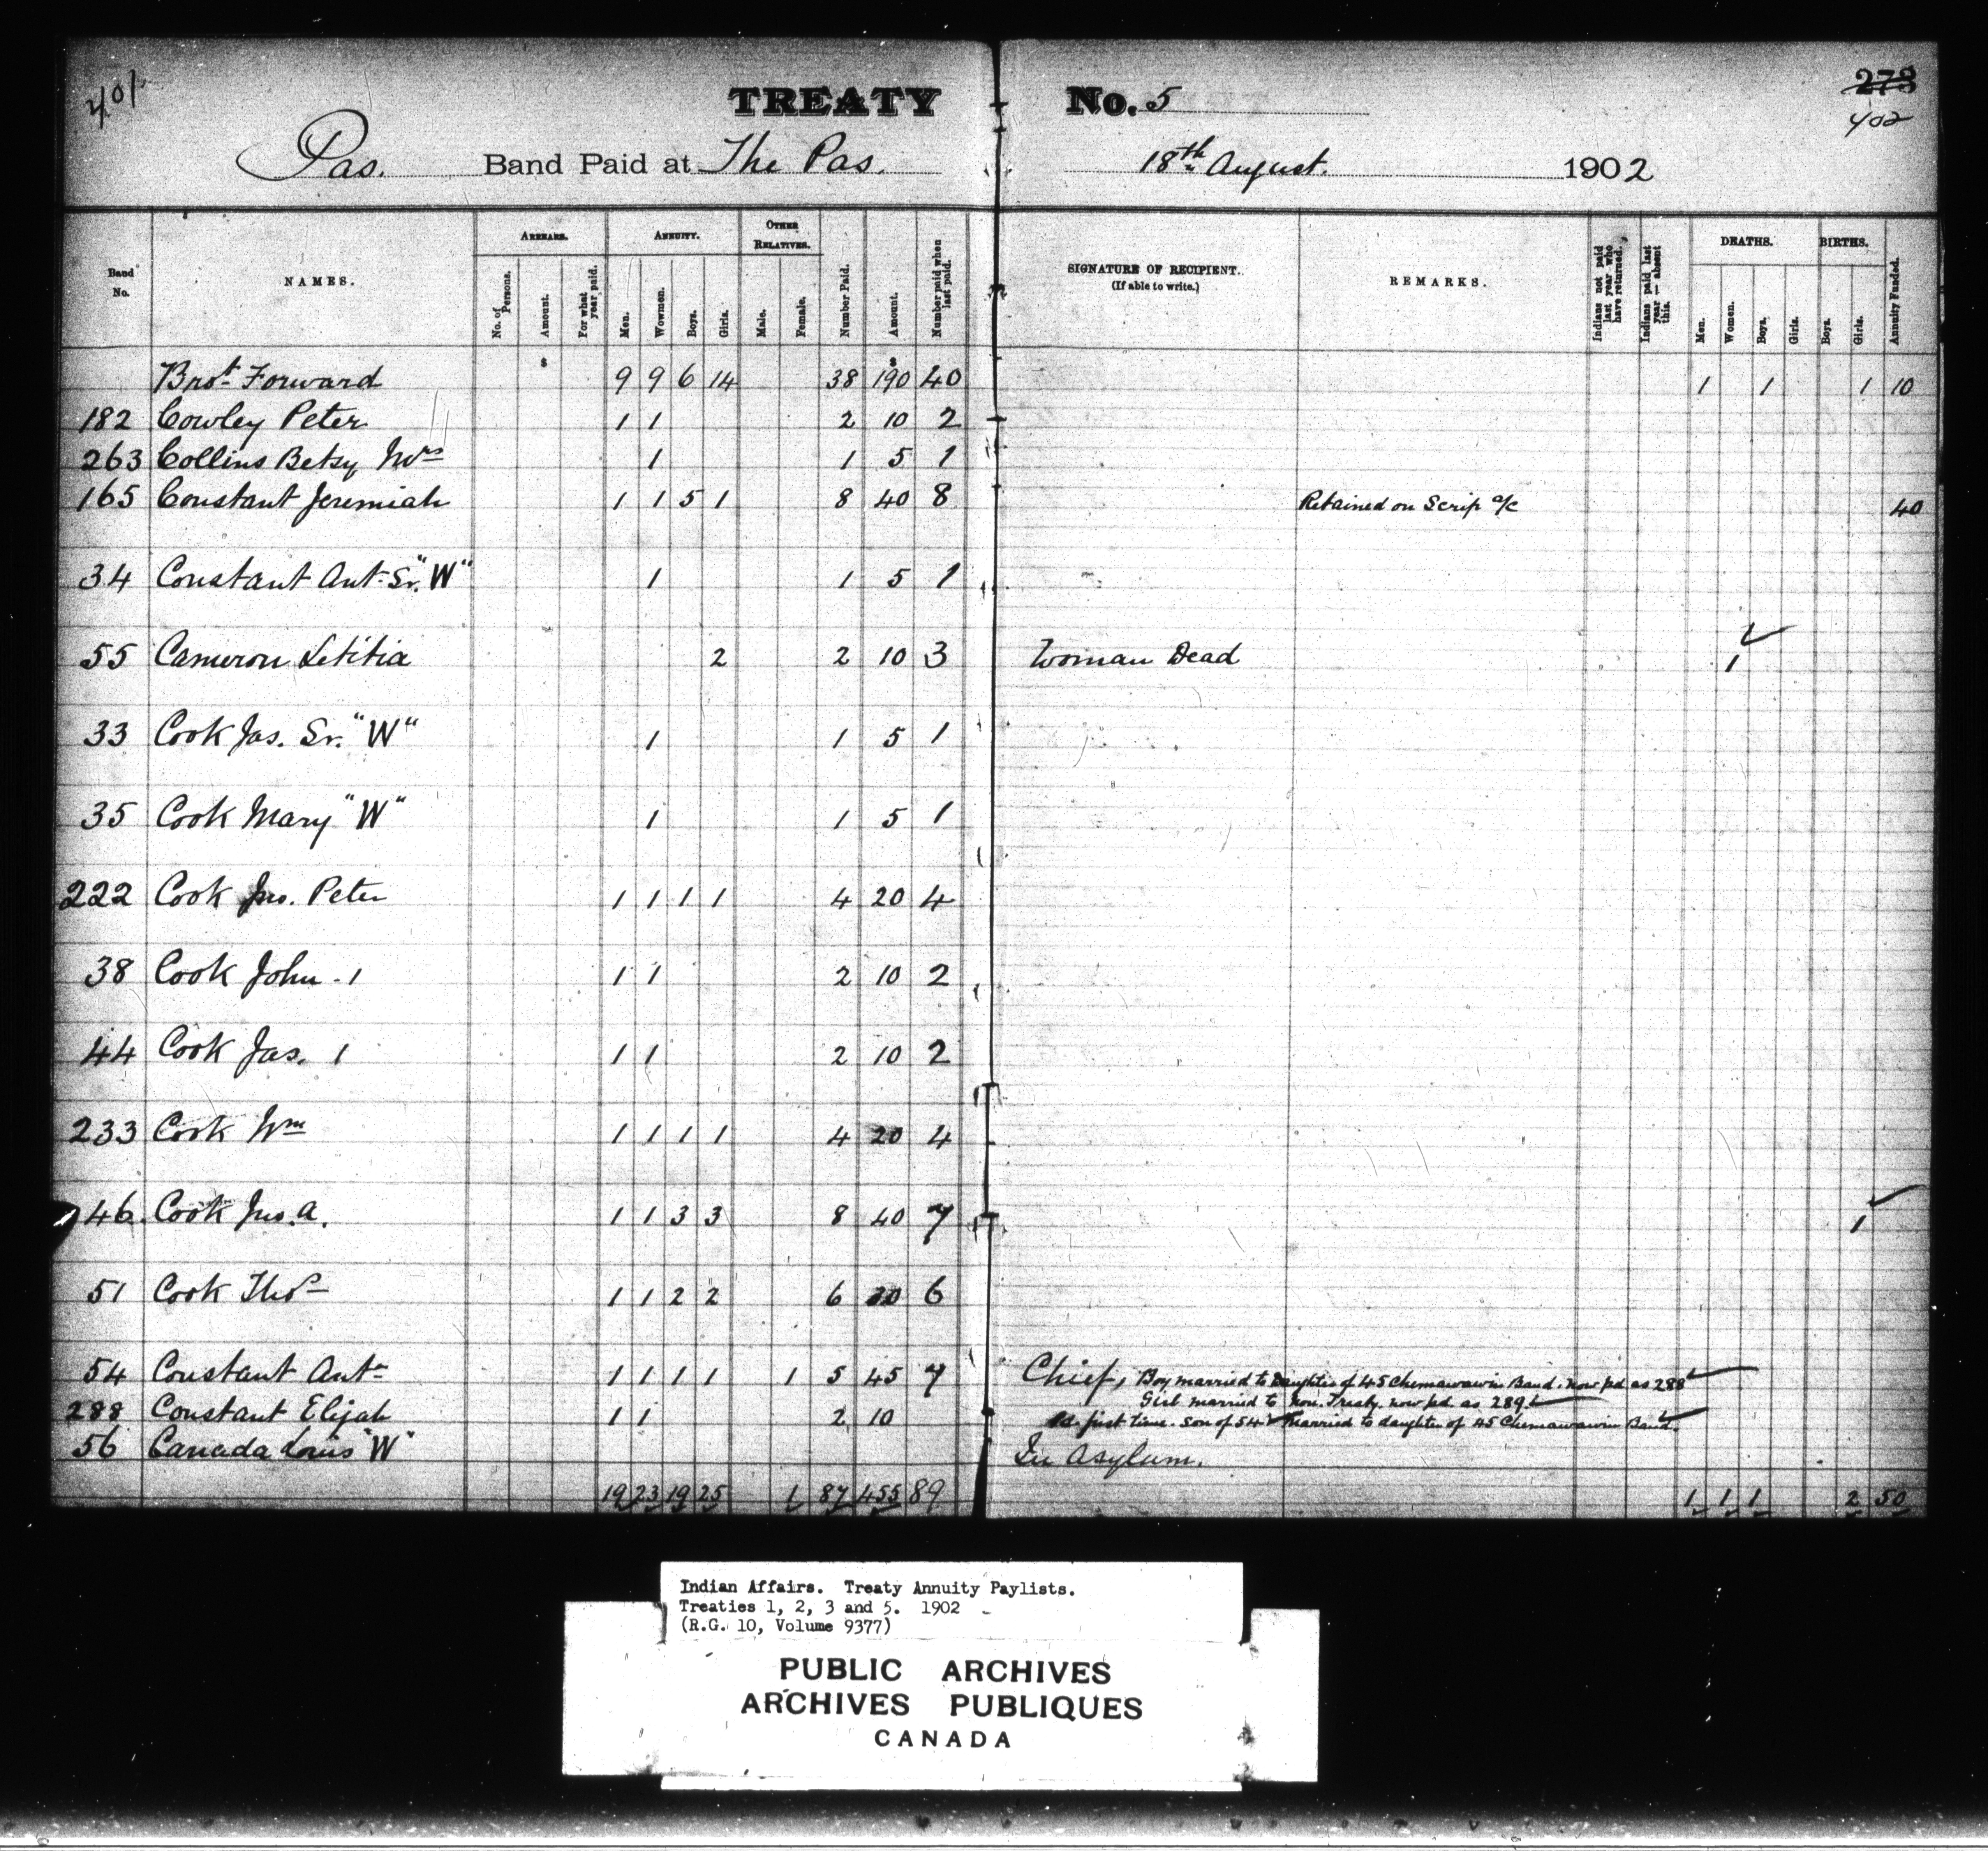 401
TREATY No. 5
273
402
Pas. Band Paid at The Pas. 18th August. 1902
Band No. NAMES. ARREARS. No. of Persons. Amount. For what year paid. ANNUITY. Men. Wowmen. Boys. Girls. OTHER RELATIVES. Male. Female. Number Paid. Amount. Number paid when last paid. SIGNATURE OF RECIPIENT. (If able to write.) REMARKS. Indians not paid last year who have returned. Indians paid last year — absent this. DEATHS. Men. Women. Boys. Girls. BIRTHS. Boys. Girls. Annuity Funded.
$ $
Brot Forward 9 9 6 14 38 190 40 1 1 1 10
182 Cowley Peter 1 1 2 10 2
263 Collins Betsy Mrs 1 1 5 1
165 Constant Jeremiah 1 1 5 1 8 40 8 Retained on Scrip a/c 40
34 Constant Ant. Sr. "W" 1 1 5 1
55 Cameron Letitia 2 2 10 3 Woman Dead 1
33 Cook Jas. Sr. "W" 1 1 5 1
35 Cook Mary "W" 1 1 5 1
222 Cook Jno. Peter 1 1 1 1 4 20 4
38 Cook John - 1 1 1 2 10 2
44 Cook Jas. 1 1 1 2 10 2
233 Cook Wm 1 1 1 1 4 20 4
46 Cook Jno. A. 1 1 3 3 8 40 7 1
51 Cook Thos 1 1 2 2 6 30 6
54 Constant Ant 1 1 1 1 1 5 45 7 Chief, Boy married to daughter of 45 Chemawawin Band. now pd as 288
Girl married to non. Treaty. now pd. as 289
288 Constant Elijah 1 1 2 10 Pd. first time. Son of 54 married to daughter of 45 Chemawawin Band.
56 Canada Louis "W" In Asylum.
19 23 19 25 1 87 455 89 1 1 1 2 50
Indian Affairs. Treaty Annuity Paylists.
Treaties 1, 2, 3 and 5. 1902
(R.G. 10, Volume 9377)
PUBLIC ARCHIVES
ARCHIVES PUBLIQUES
CANADA